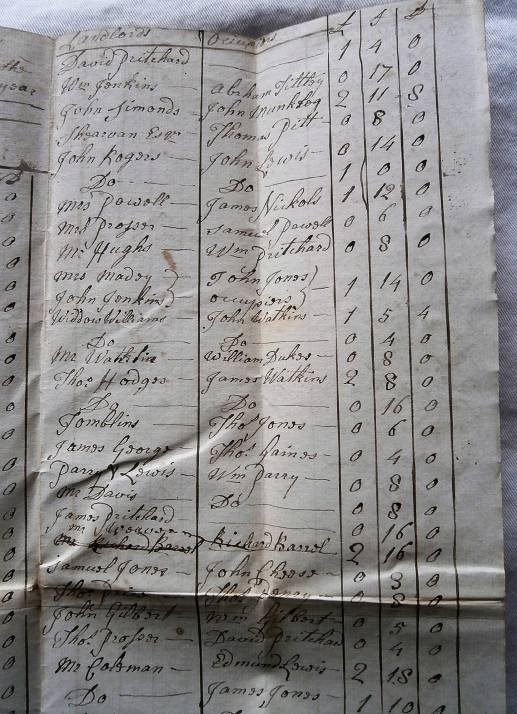 Landlords Occupiers £ S D
David Pritchard 1 4 0
Wm Jenkins - Abraham Tilley 0 17 0
John Simonds - John Munkley 2 11 8
Skearvan Esqr - Thomas Pitt - 0 8 0
John Rogers - John Lewis - 0 14 0
Do - Do 1 0 0
Mrs Powell - James Nickols 1 12 0
Mrs Prosser - Samuel Powell 0 6 0
Mr Hughs - Wm Pritchard 0 8 0
Mrs Madey } John Jones }
John Jenkins } occupiers } - 1 14 0
Widdow Williams - John Watkins - 1 5 4
Do - Do - 0 4 0
Mr Watkins - William Dukes - 0 8 0
Thos Hodges - James Watkins 2 8 0
Do - Do 0 16 0
Tomblins - Thos Jones - 0 6 0
James George - Thos Gaines - 0 4 0
Parry & Lewis - Wm Parry - 0 8 0
Mr Davis - Do - 0 8 0
James Pritchard 0 16 0
Mr Weaver
Richard Barrel 2 16 0
Samuel Jones - John Cheese - 0 8 0
Thos Price - Thos 0 8 0
John Gilbert Wm Gilbert - 0 5 0
Thos Prosser - David Pritchard 0 4 0
Mr Coleman - Edmund Lewis - 2 18 0
Do - James Jones - 1 10 0
the
year